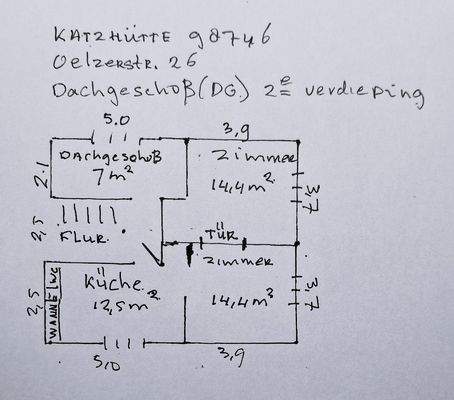 KATZHÜTTE 98746
Oelzerstr. 26
Dachgeschoß (DG) 2e verdieping
5.0
3,9
Dachgeschoß
7 m²
2.1
Zimmer
14,4 m²
3,7
2,5
FLUR
TÜR
Zimmer
14,4 m³
3,7
Küche
12,5 m²
2,5
WANNE WC
5,0
3,9